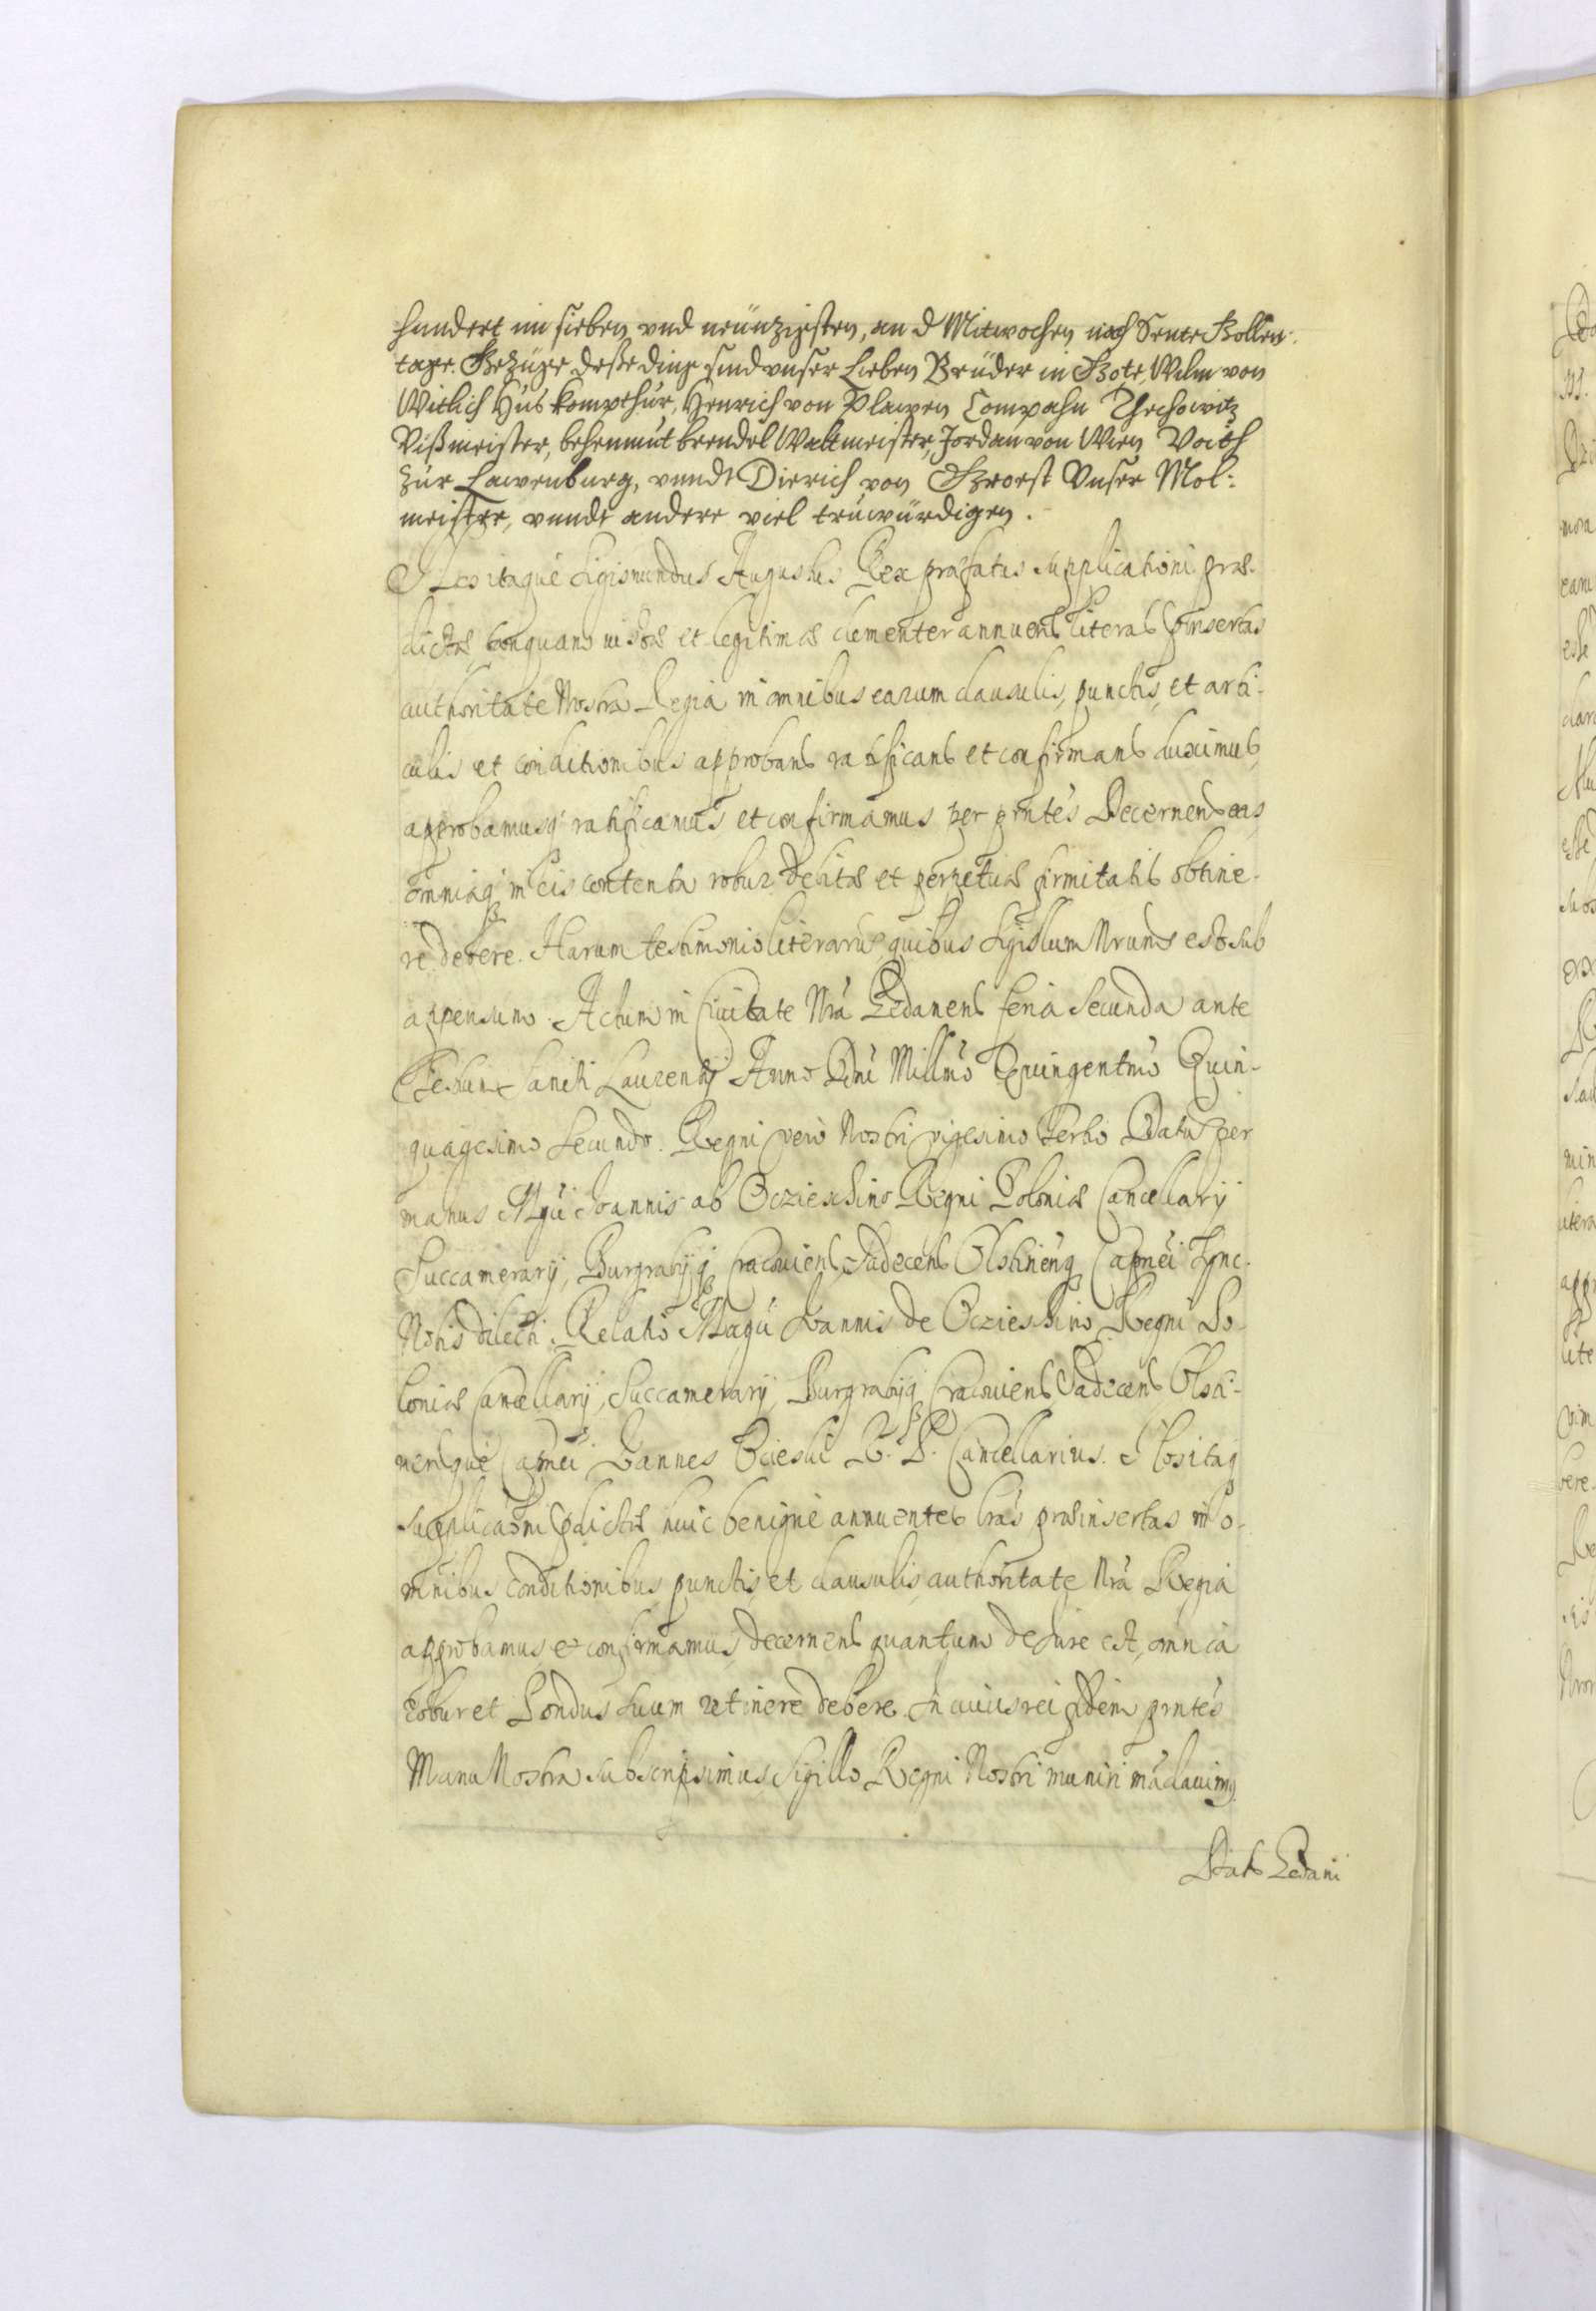 hundert im sieben vnd neünzigsten, an d Mitwochen nach Sente Gallen-
tage. Gezüge desse dinge sind vnser Lieben Brüder in Gote, Wilm von
Witlich Hus kompthúr, Henrich von Plawen Compahn Thechowitz
Vißmeister, behemmút brendel Waltmeister, Jordan von Wien Voith
zúr Lawenburg, vnndt Dierich von Groest Vnser Mol-
meister, vnndt andere viel trúwürdigen.
Nos itaque Sigismundus Augustus Rex præfatus supplicationi præ-
dictæ tanquam iustæ et legitimæ clementer annuens literas præinsertas
authoritate Nostra Regia in omnibus earum clausulis, punctis, et arti-
culis et conditionibus approbans ratificans et confirmans duximus,
approbamusq ratificamus et confirmamus per pntes Decernens eas
omniaq in eis contenta robur debitæ et perpetuæ firmitatis obtine-
re debere. Harum testimonio literarū, quibus Sigillum Nrum est sub
appensum. Actum in Ciuitate Nrã Gedanens feria Secunda ante
Festum Sancti Laurentij Anno Dni Millmo Quingentmo Quin-
quagesimo Secundo. Regni vero Nostri vigesimo Tertio Datū per
manus Mgci Joannis ab Oczieschino Regni Poloniæ Cancellarij
Succamerarij, Burgrabijq Cracouiens, Sadecens Olstinenq Capnei Sync.
Nobis dilecti. Relatio Magci Joannis de Oczieschino Regni Po-
loniæ Cancellarij, Succamerarij, Burgrabijq Cracouiens Sadecens Olsti-
nensque Capnei Joannes Ocieski R. P. Cancellarius. Nos itaq
supplicaõni pdictæ huic benigne annuentes lras præinsertas in o-
mnibus conditionibus punctis, et clausulis, authoritate Nrã Regia
approbamus, et confirmamus, decernens quantum de Jure est, omnia
robur et Pondus suum retinere debere. In cuius rei fidem pntes
Manu Nostra subscripsimus, Sigillo Regni Nostri muniri mãdauimq
Datũ Gedani